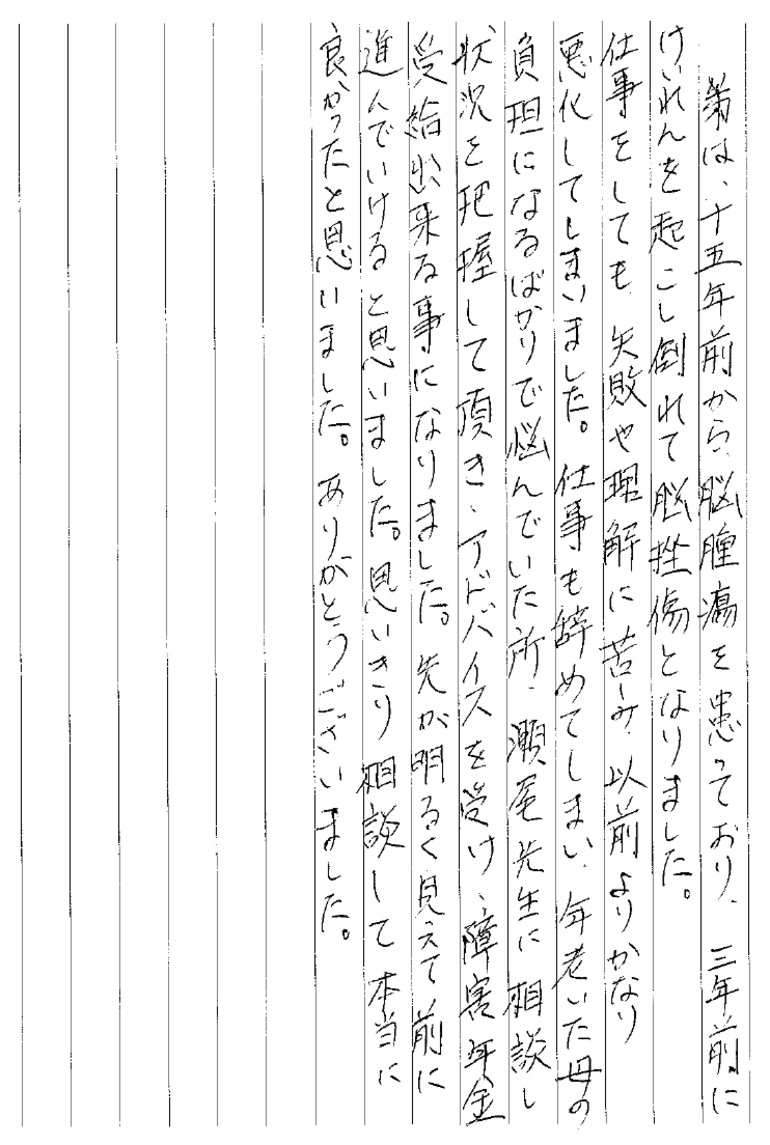 弟は、十五年前から、脳腫瘍を患っており、三年前に
けいれんを起こし倒れて脳挫傷となりました。
仕事をしても、失敗や理解に苦しみ、以前よりかなり
悪化してしまいました。仕事も辞めてしまい、年老いた母の
負担になるばかりで悩んでいた所、瀬尾先生に相談し
状況を把握して頂き、アドバイスを受け、障害年金
受給出来る事になりました。先が明るく見えて前に
進んでいけると思いました。思いきり相談して本当に
良かったと思いました。ありがとうございました。